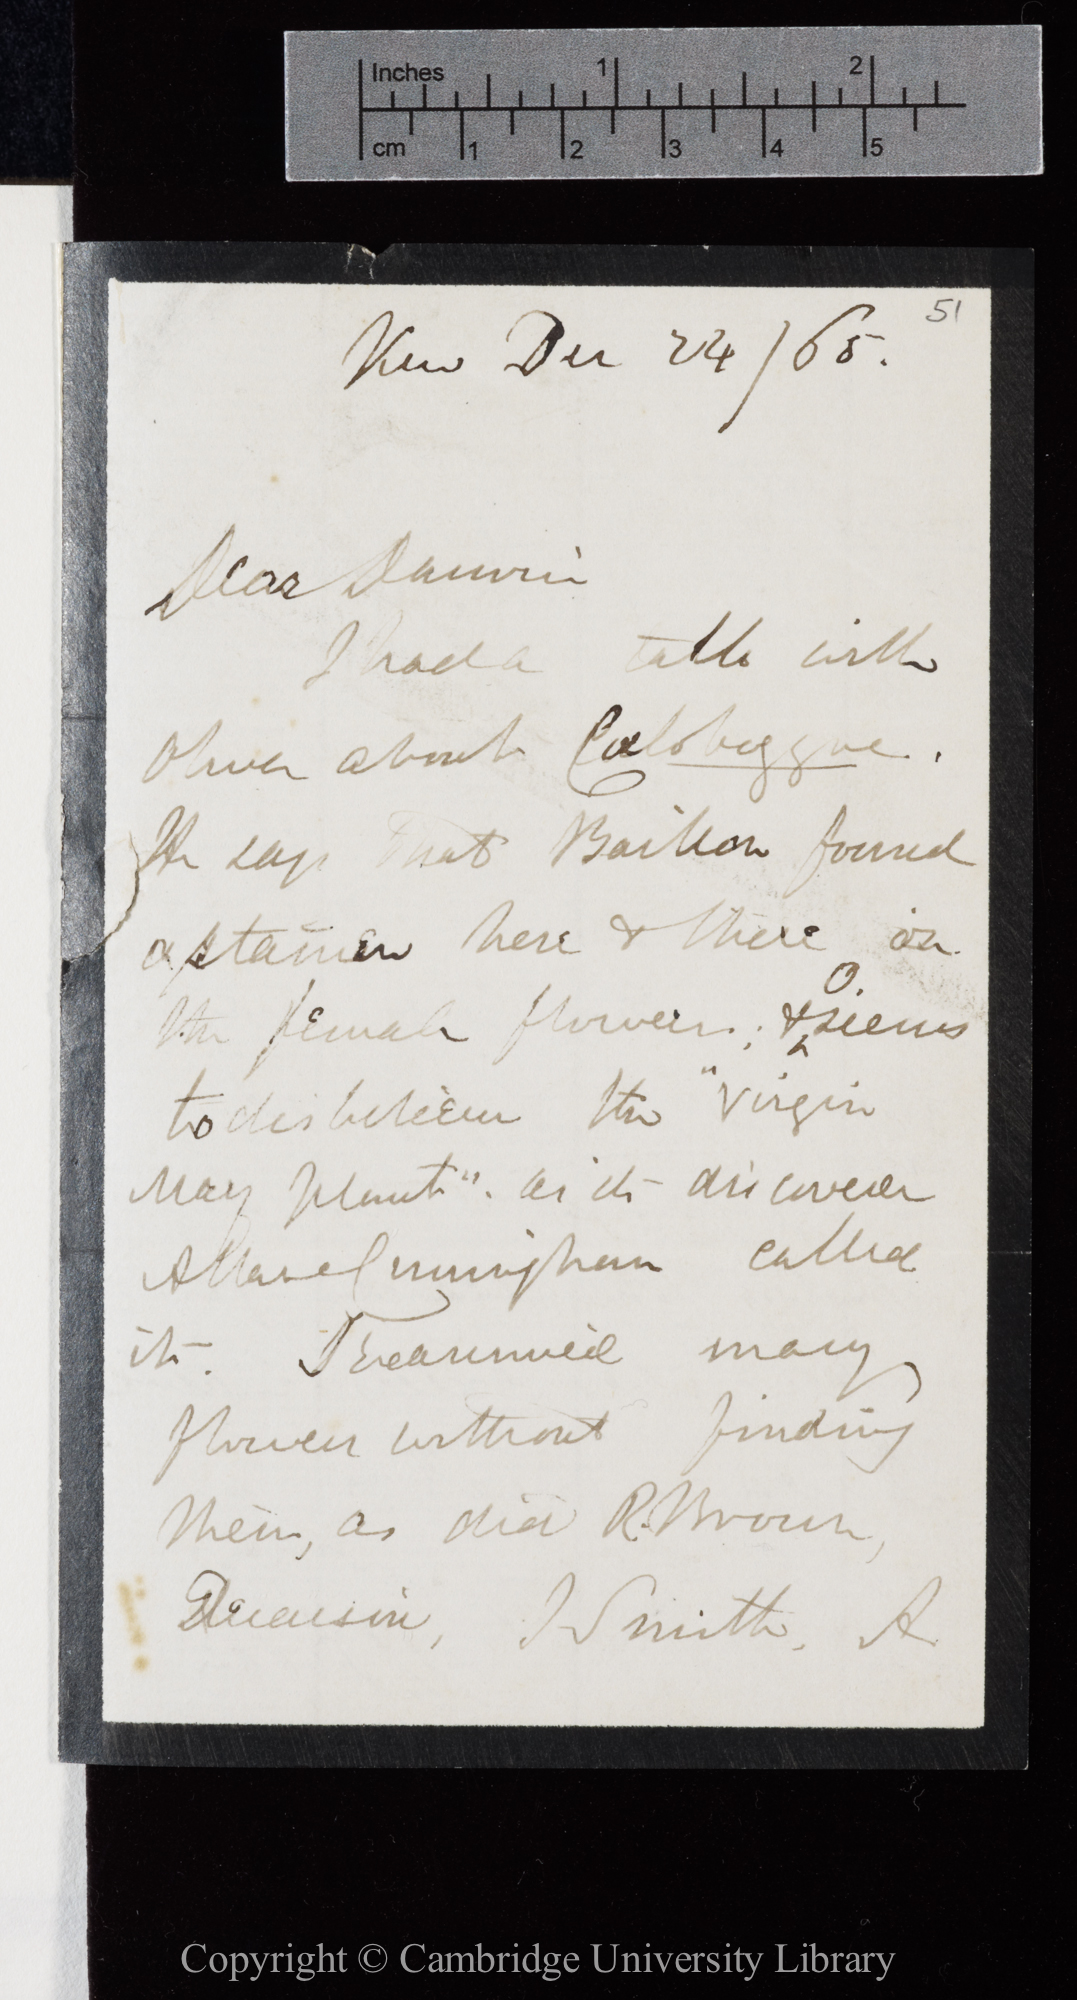 Inches 1 2
cm 1 2 3 4 5
51
Kew Dec 24/65.
Dear Darwin
I had a talk with
Oliver about Cœlobogyne.
He says that Baillon found
a stamen here & there in
the female flowers; & O. seems
to disbelieve the "Virgin
Mary plant". as its discoverer
Allan Cunningham called
it. I examined many
flowers without finding
them, as did R. Brown,
Decaisne, J Smith, A
Copyright © Cambridge University Library